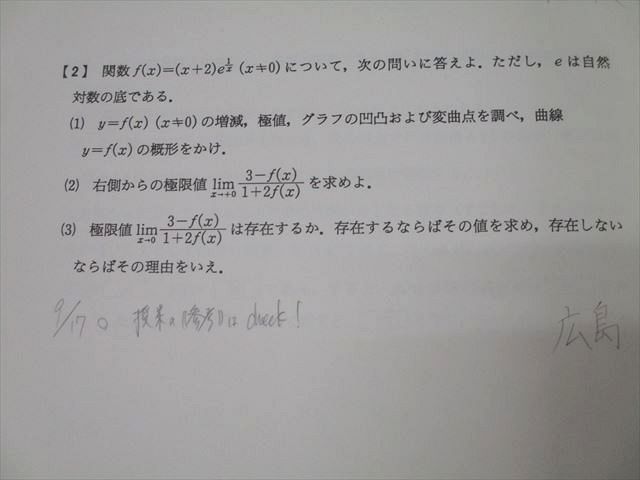 【2】 関数 f(x)=(x+2)e^{1/x} (x≠0) について，次の問いに答えよ．ただし，e は自然
対数の底である．
(1) y=f(x) (x≠0) の増減，極値，グラフの凹凸および変曲点を調べ，曲線
y=f(x) の概形をかけ．
(2) 右側からの極限値 lim_{x→+0} \frac{3-f(x)}{1+2f(x)} を求めよ．
(3) 極限値 lim_{x→0} \frac{3-f(x)}{1+2f(x)} は存在するか．存在するならばその値を求め，存在しない
ならばその理由をいえ．
9/17 。 授業の《参考》は check!
広島